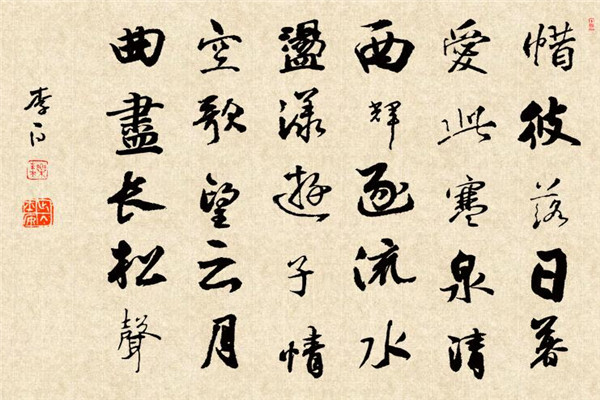 惜彼落日暮
愛此寒泉清
西輝逐流水
盪漾遊子情
空歌望云月
曲盡长松聲
李白